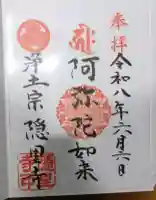 奉拝
令和八年六月六日
阿弥陀如来
浄土宗